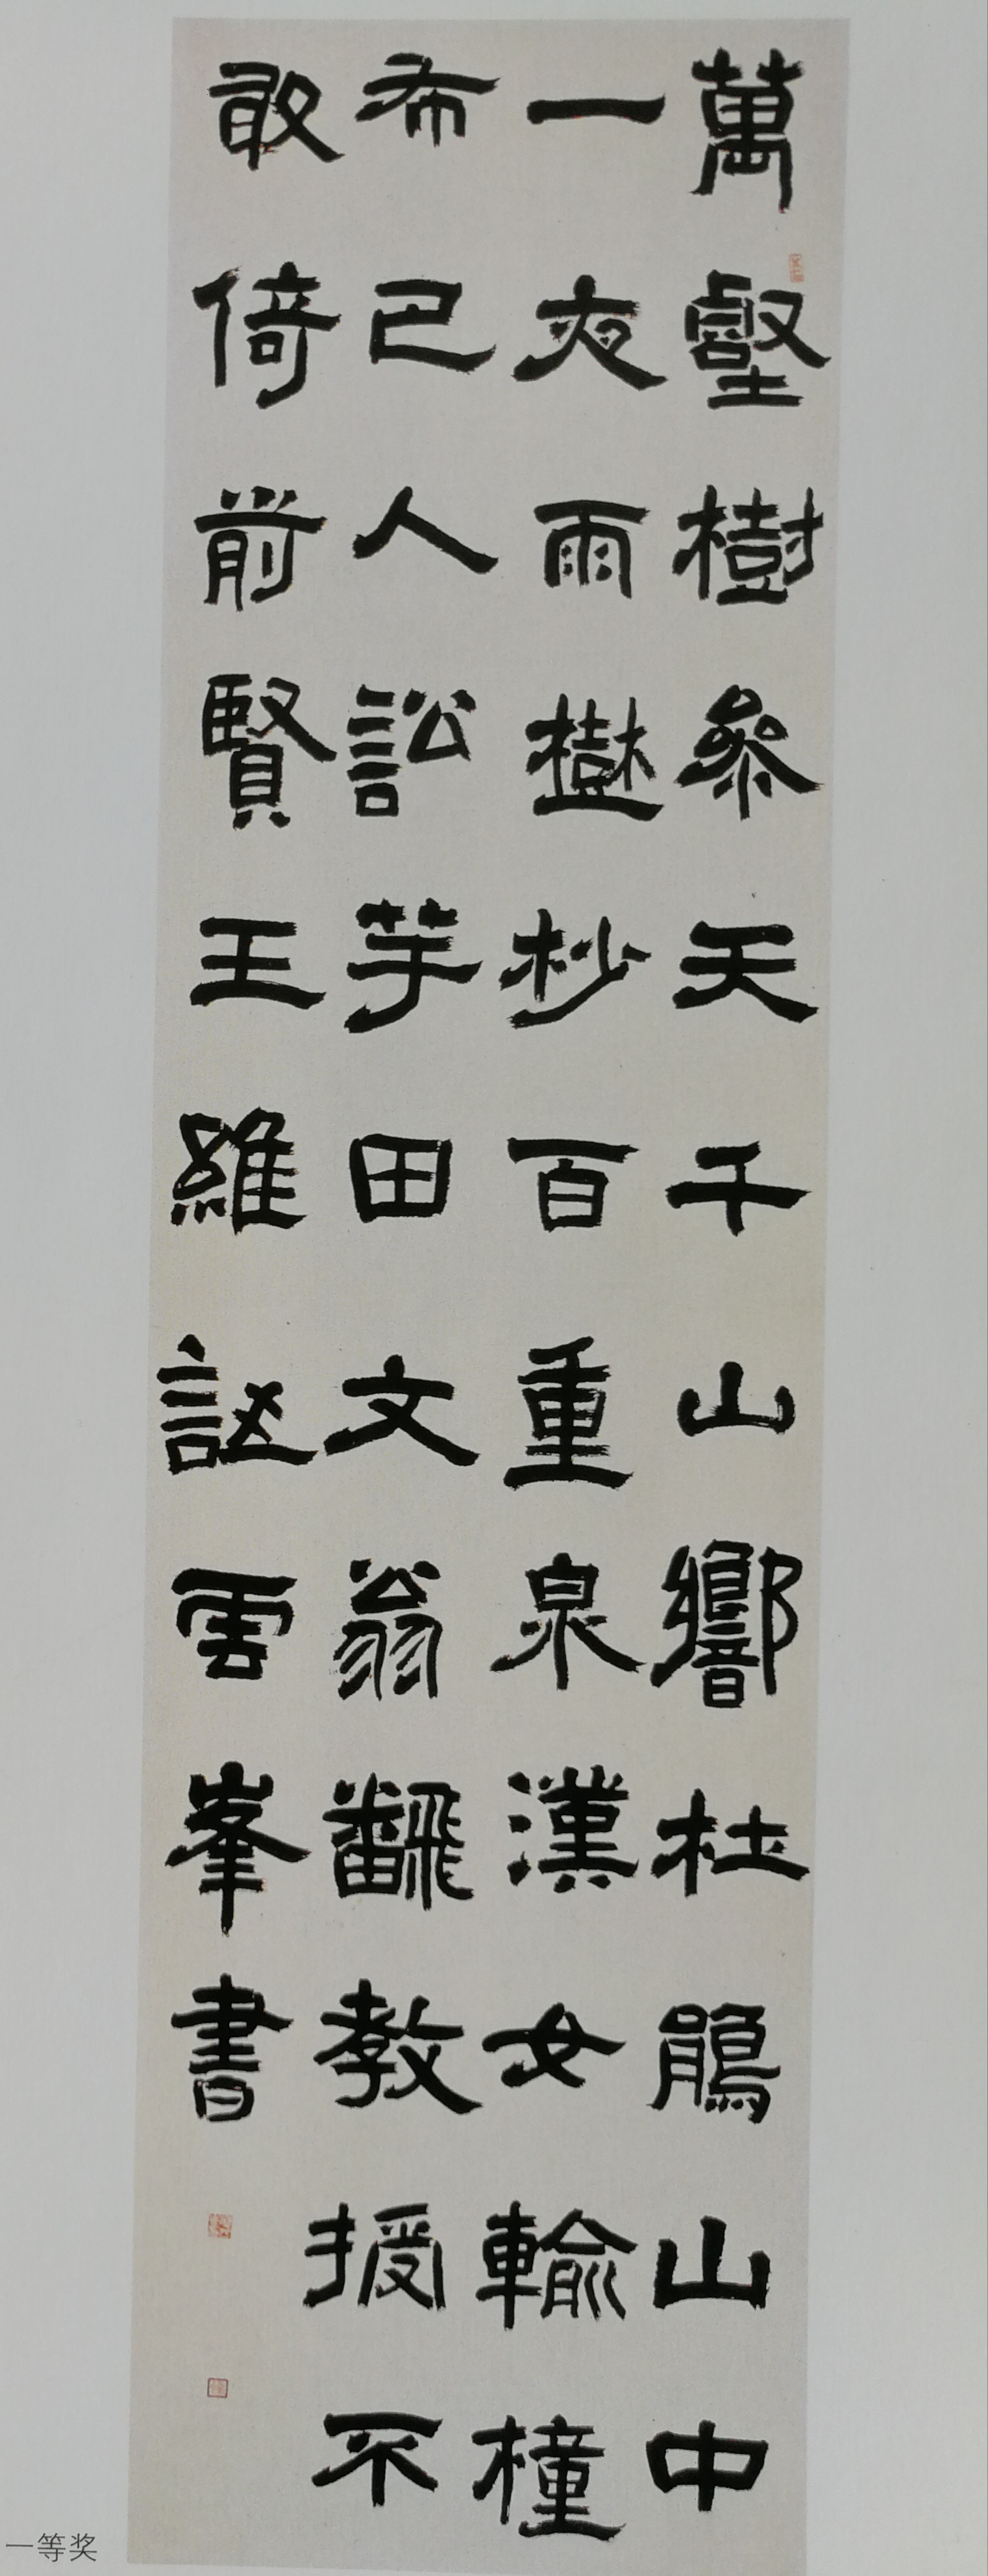 萬壑樹參天千山響杜鵑山中
一夜雨樹杪百重泉漢女輸橦
布巴人訟芋田文翁翻教授不
敢倚前賢王維詩雲峯書
一等奖